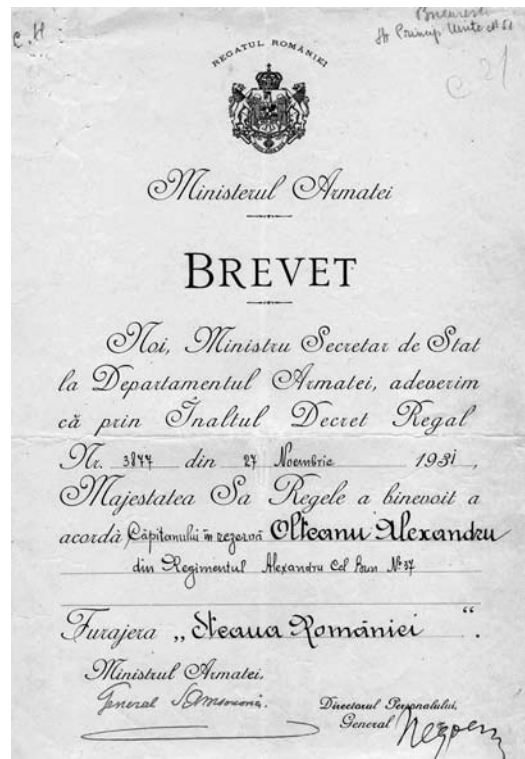 C. H
Bucuresti
Str Princip Unite № 51
C 21
REGATUL ROMÂNIEI
Ministerul Armatei
BREVET
Noi, Ministru Secretar de Stat
la Departamentul Armatei, adeverim
că prin Înaltul Decret Regal
Nr. 3877 din 27 Noembrie 1931,
Majestatea Sa Regele a binevoit a
acordà Căpitanului în rezervă Olteanu Alexandru
din Regimentul Alexandru Cel Bun № 37
Furajera „Steaua României“.
Ministrul Armatei,
General
Directorul Personalului,
General